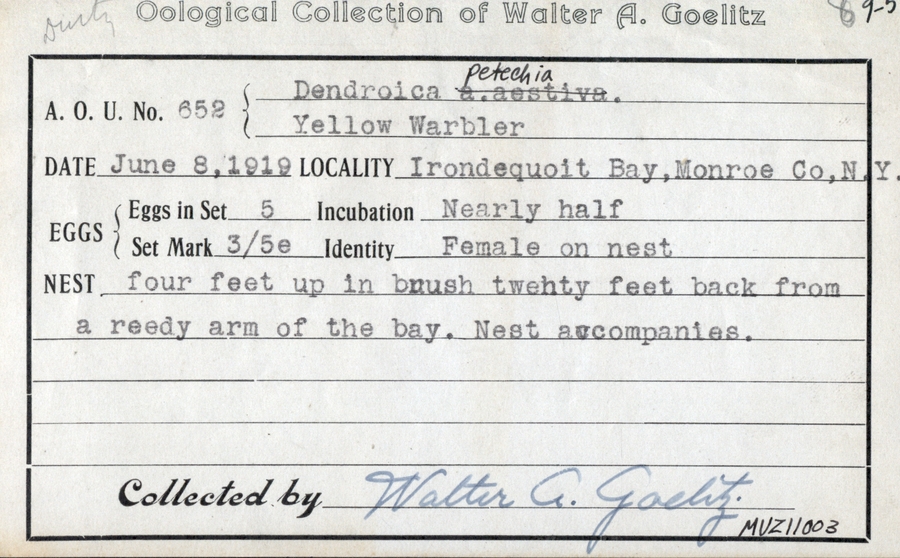 Oological Collection of Walter A. Goelitz
petechia
A. O. U. No. 652 Dendroica a.aestiva.
Yellow Warbler
DATE June 8,1919 LOCALITY Irondequoit Bay,Monroe Co,N.Y.
EGGS Eggs in Set 5 Incubation Nearly half
Set Mark 3/5e Identity Female on nest
NEST four feet up in brush twehty feet back from
a reedy arm of the bay. Nest accompanies.
Collected by Walter A. Goelitz.
MVZ11003